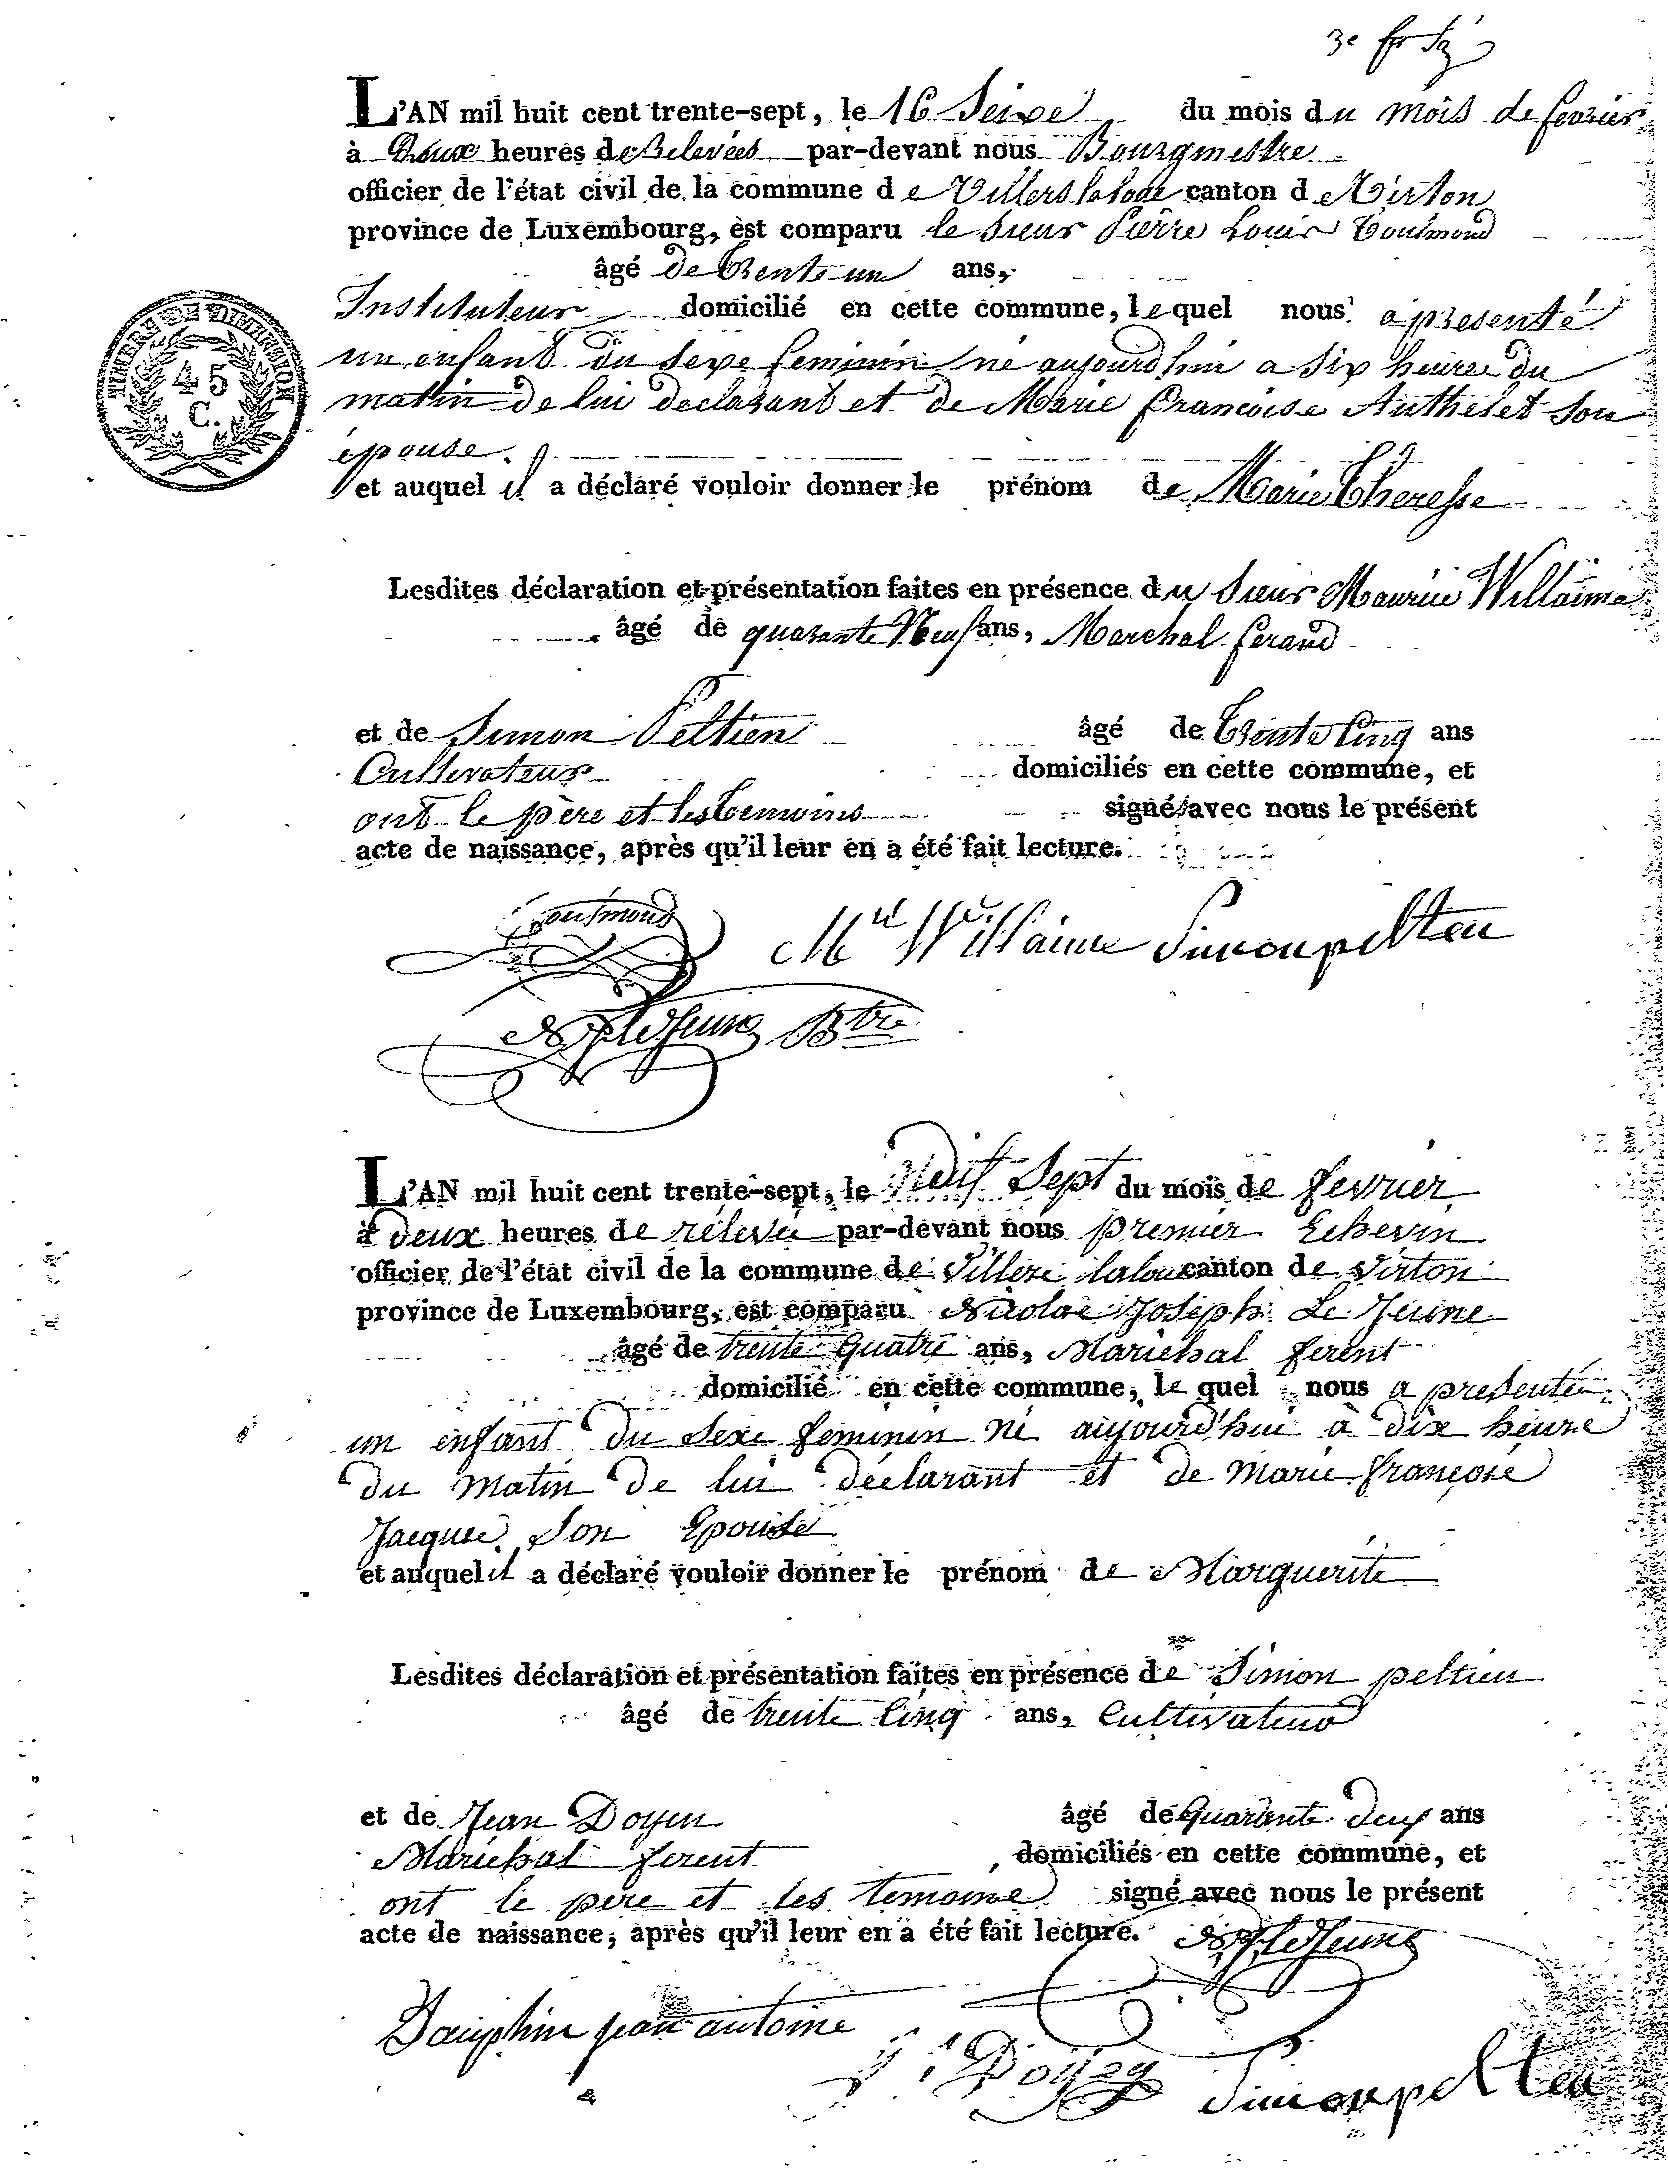 3e
L'AN mil huit cent trente-sept, le 16 Seize du mois du mois de fevrier
à Deux heures de Relevées par-devant nous Bourgmestre
officier de l'état civil de la commune de Villers la loue canton de Virton
province de Luxembourg, est comparu le sieur Pierre Louis Tousmond
âgé de Trente un ans,
Instituteur domicilié en cette commune, lequel nous a presenté
TIMBRE DE DIMENSION
45
C.
un enfant du sexe feminin né aujourd'hui a six heures du
matin de lui declarant et de Marie Francoise Authelet son
épouse.
et auquel il a déclaré vouloir donner le prénom de Marie Theresse
Lesdites déclaration et présentation faites en présence du sieur Maurice Willaime
âgé de quarante Neuf ans, Marchal ferand
et de Simon Peltien âgé de Trente Cinq ans
Cultivateur domiciliés en cette commune, et
ont le père et les temoins signés avec nous le présent
acte de naissance, après qu'il leur en a été fait lecture.
Tousmond Mce Willaime Simon pelten
NJ leJeune Btre
L'AN mil huit cent trente-sept, le Sept du mois de fevrier
à deux heures de rélevée par-devant nous premier Echevin
officier de l'état civil de la commune de Villers laloue canton de Virton
province de Luxembourg, est comparu Nicolas Joseph Le Jeune
âgé de trente quatre ans, Marichal ferent
domicilié en cette commune, le quel nous a presenté
un enfant du sexe feminin né aujourd'hui à dix heure
du matin de lui déclarant et de marie françoise
Jacques son Epouse
et auquel il a déclaré vouloir donner le prénom de Marguerite
Lesdites déclaration et présentation faites en présence de Simon peltien
âgé de trente Cinq ans, Cultivateur
et de Jean Doyen âgé de quarante deux ans
Marichal ferent domiciliés en cette commune, et
ont le père et les temoins signé avec nous le présent
acte de naissance, après qu'il leur en a été fait lecture. NJ leJeune
Dauphin jean antoine
J. Doyen Simon pelten